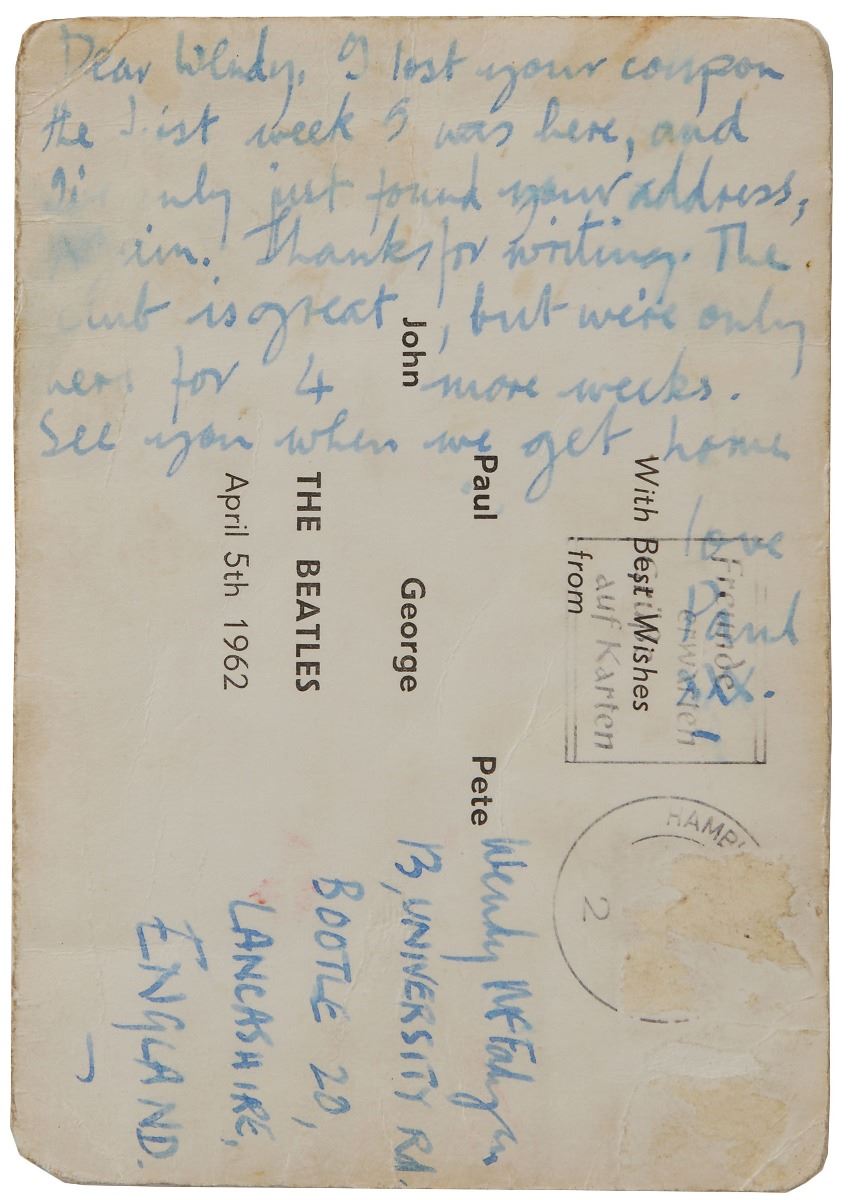 Dear Wendy, I lost your coupon
the first week I was here, and
only just found your address,
again. Thanks for writing. The
club is great, but we're only
here for 4 more weeks.
See you when we get home
love
Paul
xx.
With Best Wishes
from
John Paul George Pete
THE BEATLES
April 5th 1962
Freunde
erwarten
auf Karten
HAMB
2
Wendy
13, UNIVERSITY Rd.
BOOTLE 20,
LANCASHIRE,
ENGLAND.